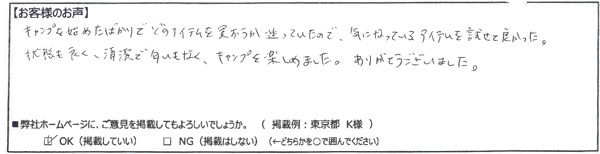 【お客様のお声】
キャンプを始めたばかりでどのアイテムを買おうか迷っていたので、気になっているアイテムを試せて良かった。
状態も良く、清潔で匂いもなく、キャンプを楽しめました。ありがとうございました。
■弊社ホームページに、ご意見を掲載してもよろしいでしょうか。（ 掲載例：東京都 K様 ）
☑ OK（掲載していい） □ NG（掲載はしない）（←どちらかを○で囲んでください）